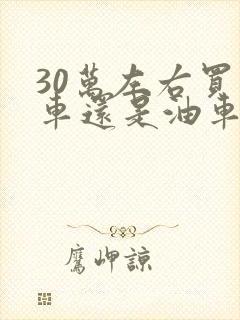 30萬左右買
車還是油車
鷹岬諒